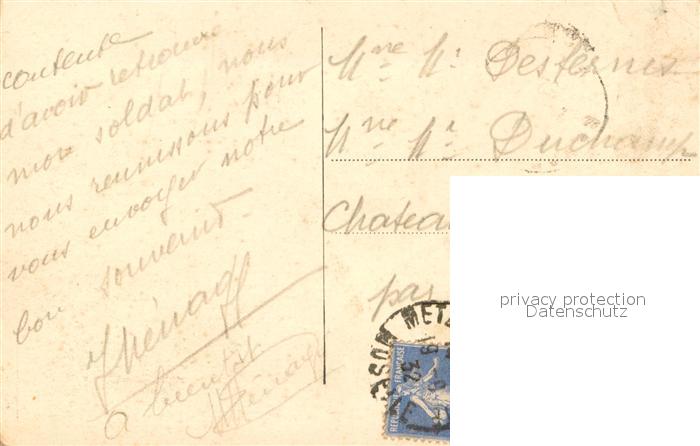 contente
d'avoir retrouvé
mon soldat, nous
nous reunissons pour
vous envoyer notre
bon souvenir.
Ménage
A bientôt
Ménage
Mme Mr Desfernis
Mme Mr Duchamp
Chateau
par
privacy protection
Datenschutz
METZ
MOSE
19
32
REPUBLIQUE FRANÇAISE